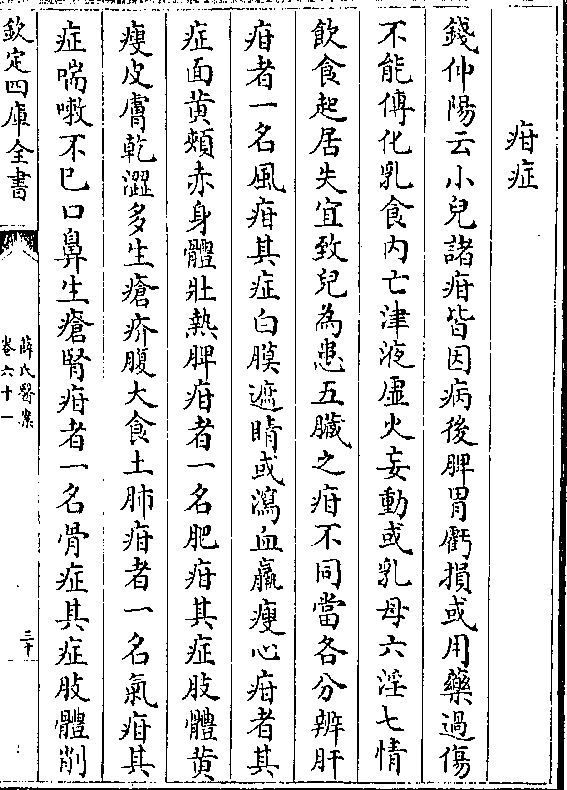 疳症
錢仲陽云小兒諸疳皆因病後脾胃虧損或用藥過傷
不能傳化乳食内亡津液虛火妄動或乳母六淫七情
飲食起居失宜致兒為患五臟之疳不同當各分辨肝
疳者一名風疳其症白膜遮睛或瀉血羸瘦心疳者其
症面黄頰赤身體壯熱脾疳者一名肥疳其症肢體黄
瘦皮膚乾澀多生瘡疥腹大食土肺疳者一名氣疳其
症喘嗽不已口鼻生瘡腎疳者一名骨症其症肢體削
欽定四庫全書
薛氏醫案
卷六十一
三十